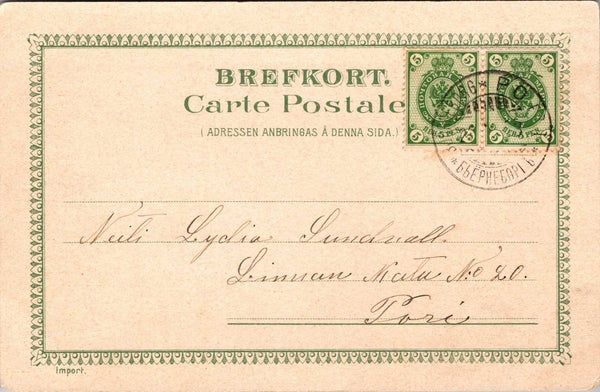 BREFKORT.
Carte Postale
(ADRESSEN ANBRINGAS Å DENNA SIDA.)
5 5 5 5
PEN. 5 PEN.
БЬЕРНЕБОРГЪ
Neiti Lydia Sundvall.
Linnan Katu No: 20.
Pori
Import.